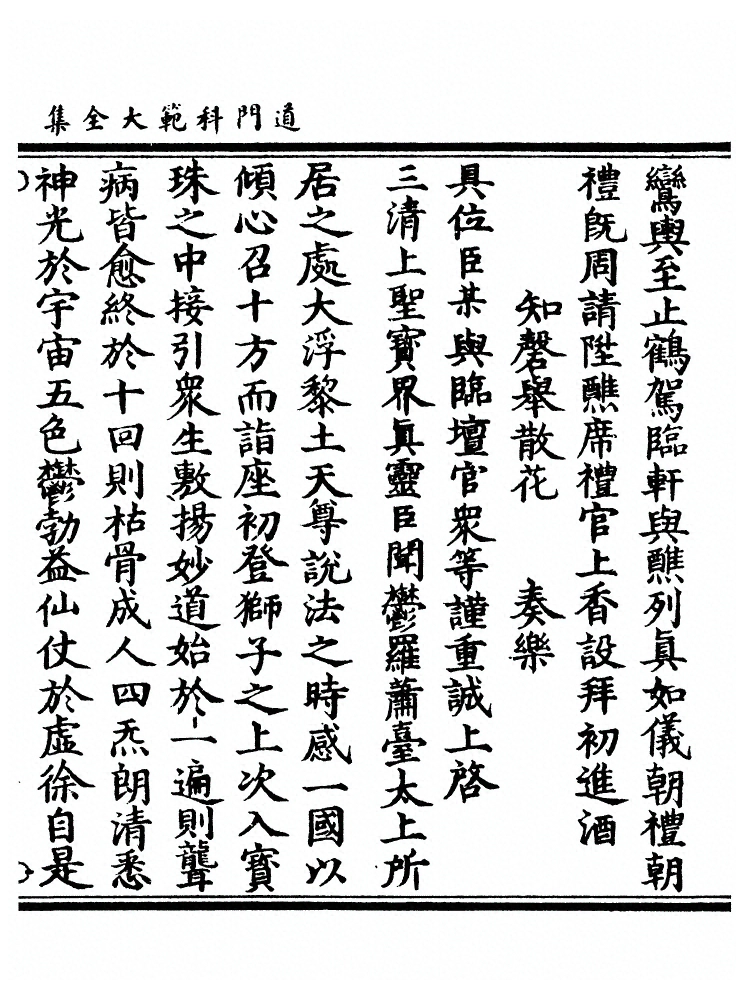 道門科範大全集
鸞輿至止鶴駕臨軒與醮列真如儀朝禮朝
禮既周請陞醮席禮官上香設拜初進酒
知磬舉散花 奏樂
具位臣某與臨壇官衆等謹重誠上啓
三清上聖寶界眞靈臣聞鬱羅蕭臺太上所
居之處大浮黎土天尊説法之時感一國以
傾心召十方而詣座初登獅子之上次入寶
珠之中接引衆生敷揚妙道始於一遍則聾
病皆愈終於十回則枯骨成人四炁朗清悉
神光於宇宙五色鬱勃益仙仗於虛徐自是